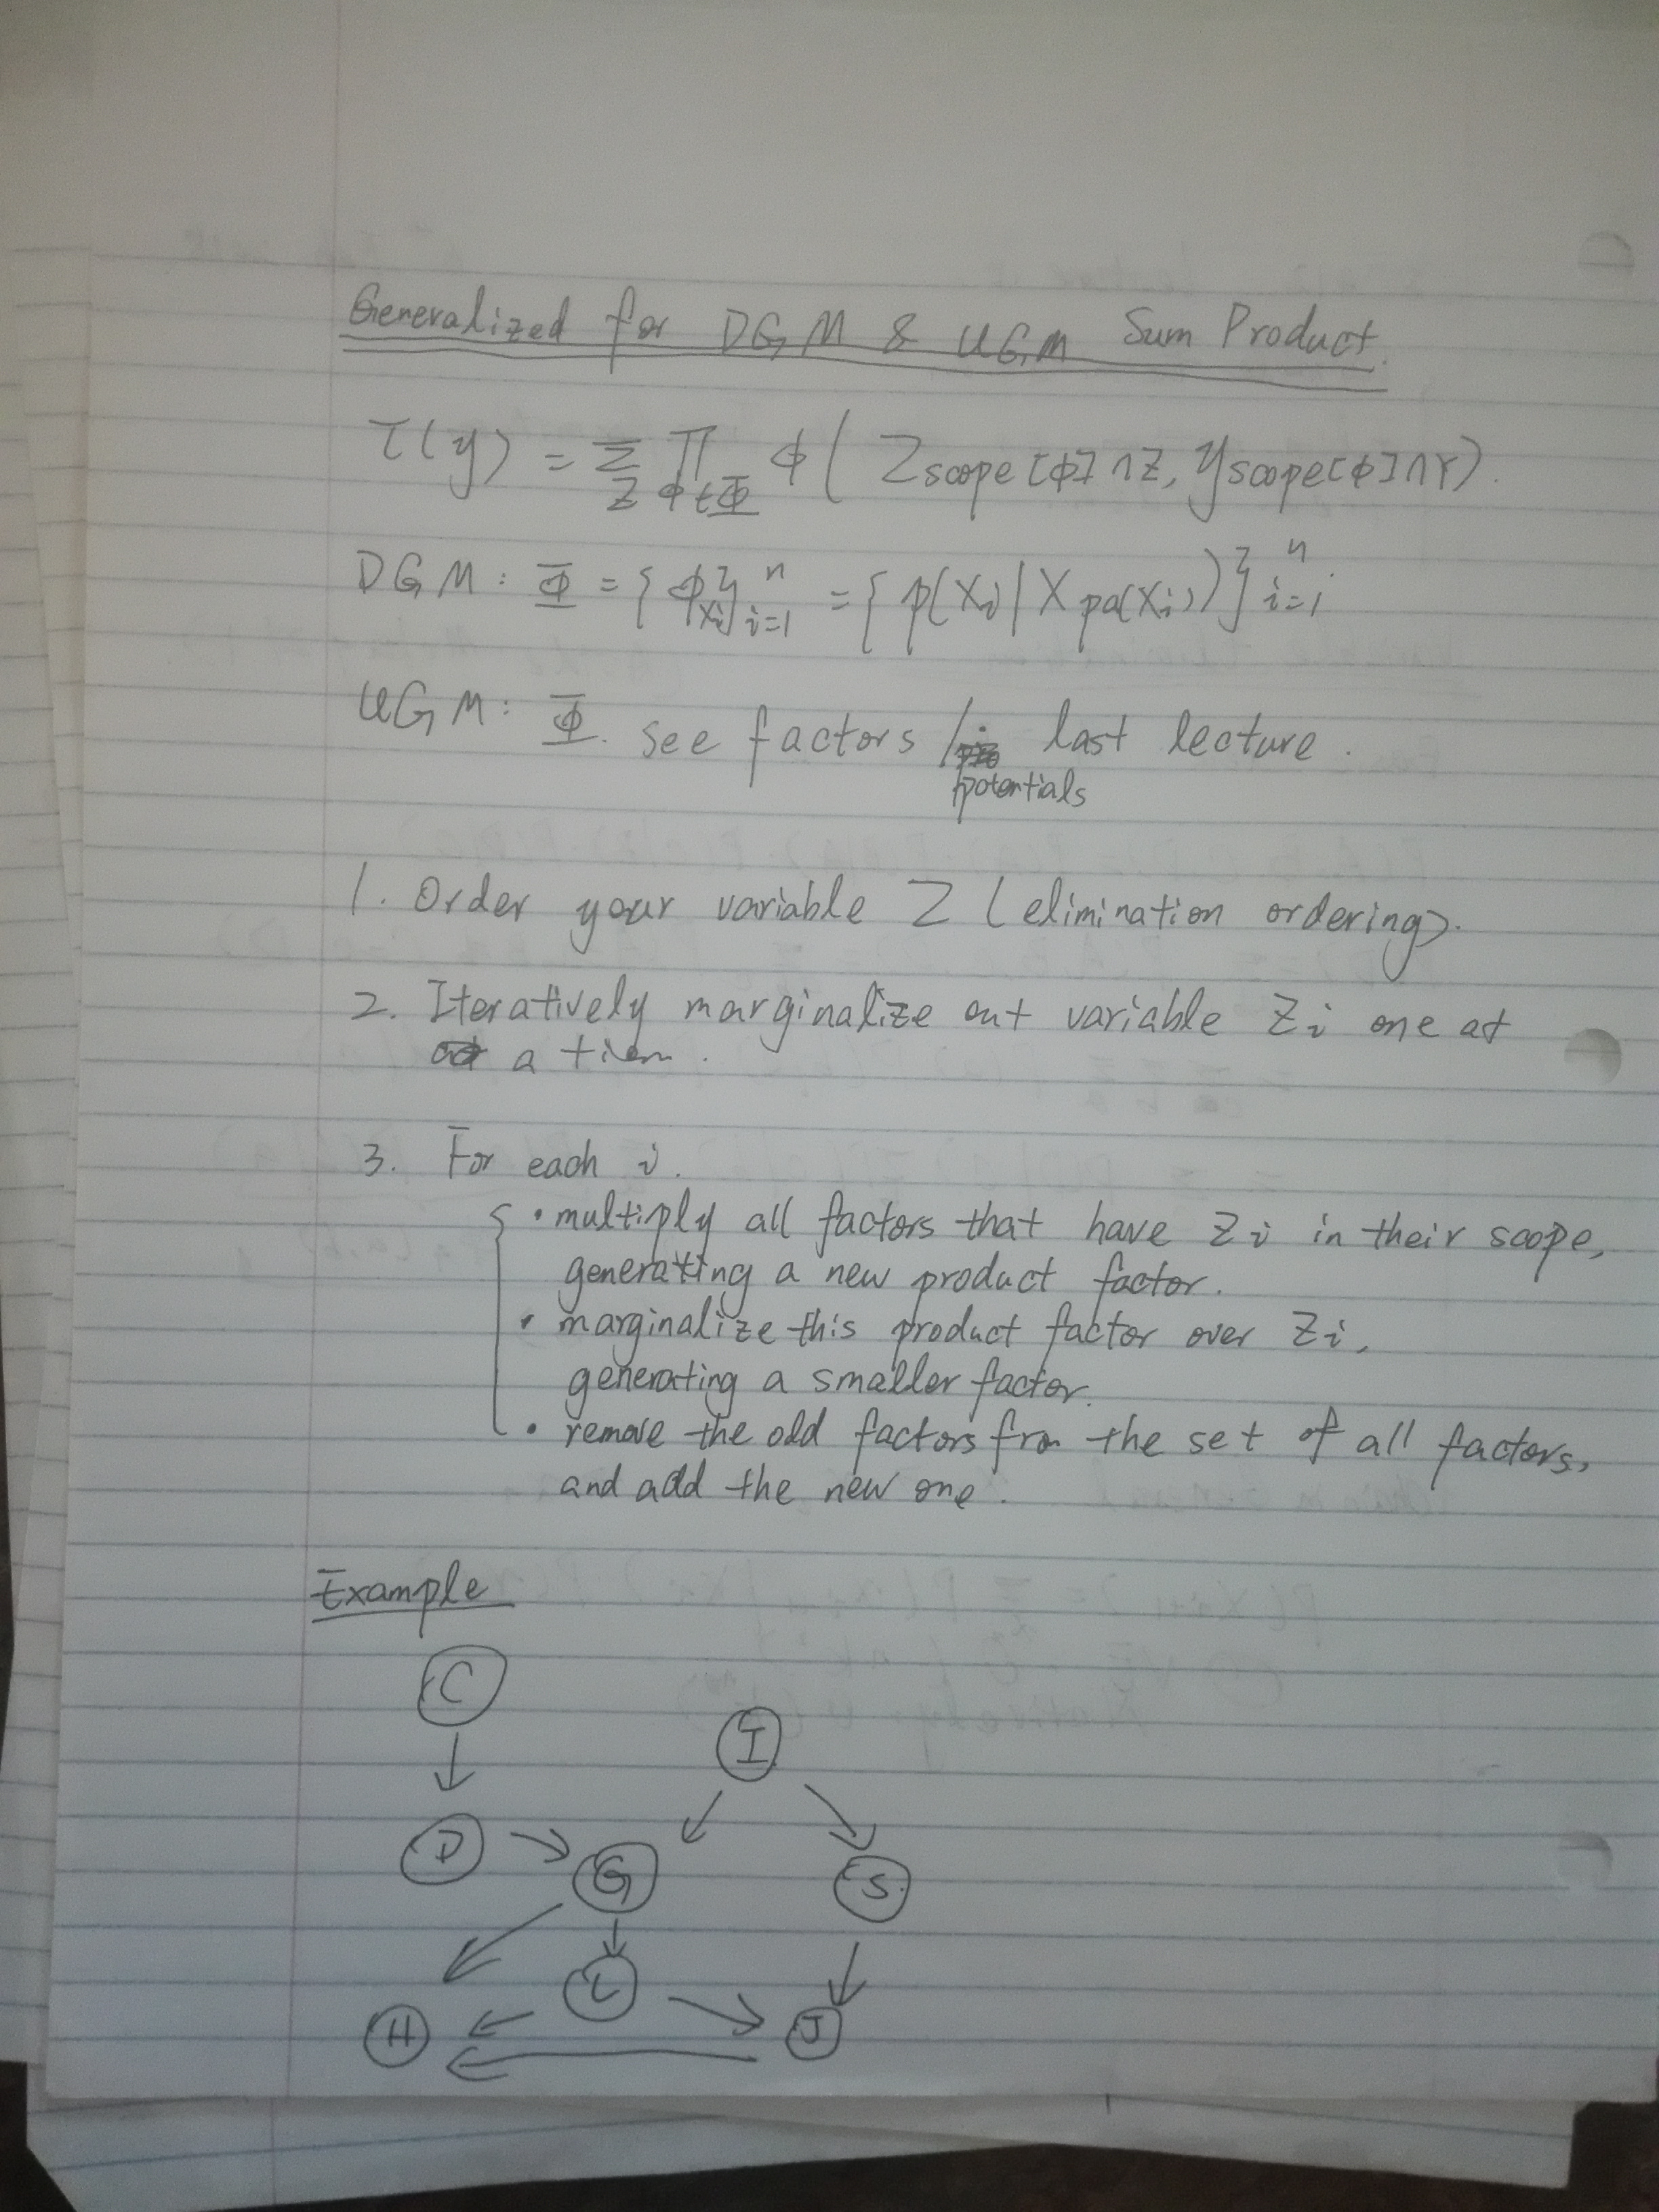 Generalized for DGM & UGM Sum Product.
τ(y) = Σ_z Π_{φ∈Φ} φ( Z_{scope[φ]∩Z}, y_{scope[φ]∩Y} ).
DGM: Φ = {φ_{Xi}}_{i=1}^n = { p(Xi | X_{pa(Xi)}) }_{i=1}^n
UGM: Φ. see factors / last lecture.
potentials
1. Order your variable Z (elimination ordering).
2. Iteratively marginalize out variable Zi one at
a tiem.
3. For each i.
• multiply all factors that have Zi in their scope,
generating a new product factor.
• marginalize this product factor over Zi,
generating a smaller factor.
• remove the old factors from the set of all factors,
and add the new one.
Example
C
I
D G S
L
H J